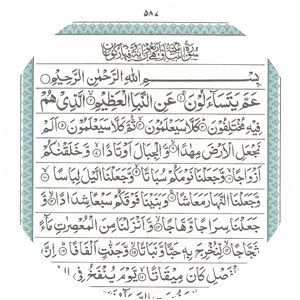 ٥٨٧
سُورَةُ النَّبَإِ
بِسْمِ اللَّهِ الرَّحْمَٰنِ الرَّحِيمِ
عَمَّ يَتَسَاءَلُونَ عَنِ النَّبَإِ الْعَظِيمِ الَّذِي هُمْ
فِيهِ مُخْتَلِفُونَ كَلَّا سَيَعْلَمُونَ ثُمَّ كَلَّا سَيَعْلَمُونَ أَلَمْ
نَجْعَلِ الْأَرْضَ مِهَادًا وَالْجِبَالَ أَوْتَادًا وَخَلَقْنَاكُمْ
أَزْوَاجًا وَجَعَلْنَا نَوْمَكُمْ سُبَاتًا وَجَعَلْنَا اللَّيْلَ لِبَاسًا
وَجَعَلْنَا النَّهَارَ مَعَاشًا وَبَنَيْنَا فَوْقَكُمْ سَبْعًا شِدَادًا وَ
جَعَلْنَا سِرَاجًا وَهَّاجًا وَأَنْزَلْنَا مِنَ الْمُعْصِرَاتِ مَاءً
ثَجَّاجًا لِنُخْرِجَ بِهِ حَبًّا وَنَبَاتًا وَجَنَّاتٍ أَلْفَافًا إِنَّ
الْفَصْلِ كَانَ مِيقَاتًا يَوْمَ يُنْفَخُ فِي